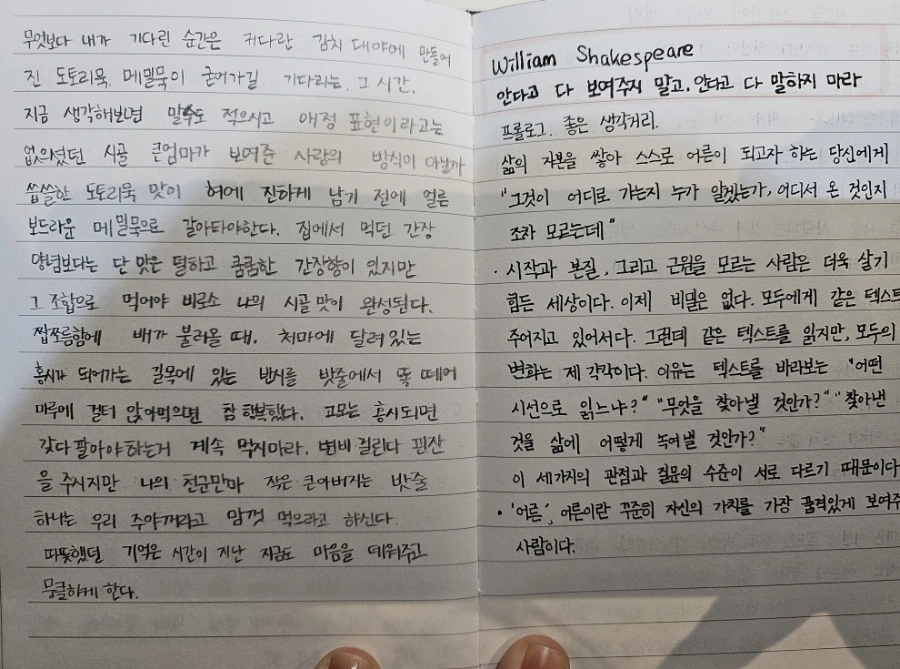 무엇보다 내가 기다린 순간은 커다란 김치 대야에 만들어
진 도토리묵, 메밀묵이 굳어가길 기다리는 그 시간.
지금 생각해보면 말수도 적으시고 애정 표현이라고는
없으셨던 시골 큰엄마가 보여준 사랑의 방식이 아닐까
씁쓸한 도토리묵 맛이 혀에 진하게 남기 전에 얼른
보드라운 메밀묵으로 갈아타야한다. 집에서 먹던 간장
양념보다는 단 맛은 덜하고 쿰쿰한 간장향이 있지만
그 조합으로 먹어야 비로소 나의 시골 맛이 완성된다.
짭쪼름함에 배가 불러올 때, 처마에 달려있는
홍시가 되어가는 길목에 있는 반시를 밧줄에서 똑 떼어
마루에 걸터 앉아먹으면 참 행복했다. 고모는 홍시되면
갖다 팔아야하는거 계속 먹지마라, 변비 걸린다 핀잔
을 주시지만 나의 천군만마 작은 큰아버지는 밧줄
하나는 우리 주아꺼라고 맘껏 먹으라고 하신다.
따뜻했던 기억은 시간이 지난 지금도 마음을 데워주고
뭉클하게 한다.
William Shakespeare
안다고 다 보여주지 말고, 안다고 다 말하지 마라
프롤로그. 좋은 생각거리.
삶의 자본을 쌓아 스스로 어른이 되고자 하는 당신에게
"그것이 어디로 가는지 누가 알겠는가, 어디서 온 것인지
조차 모르는데"
· 시작과 본질, 그리고 근원을 모르는 사람은 더욱 살기
힘든 세상이다. 이제 비밀은 없다. 모두에게 같은 텍스트
주어지고 있어서다. 그런데 같은 텍스트를 읽지만, 모두의
변화는 제 각각이다. 이유는 텍스트를 바라보는 "어떤
시선으로 읽느냐?" "무엇을 찾아낼 것인가?" "찾아낸
것을 삶에 어떻게 녹여낼 것인가?"
이 세가지의 관점과 질문의 수준이 서로 다르기 때문이다
· '어른', 어른이란 꾸준히 자신의 가치를 가장 품격있게 보여주
사람이다.